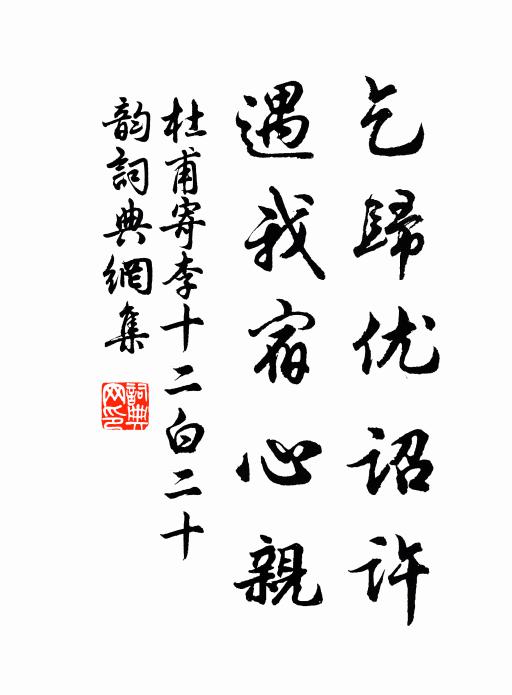 乞歸优詔許
遇我宿心親
杜甫寄李十二白二十
韵詞典網集
詞典网印